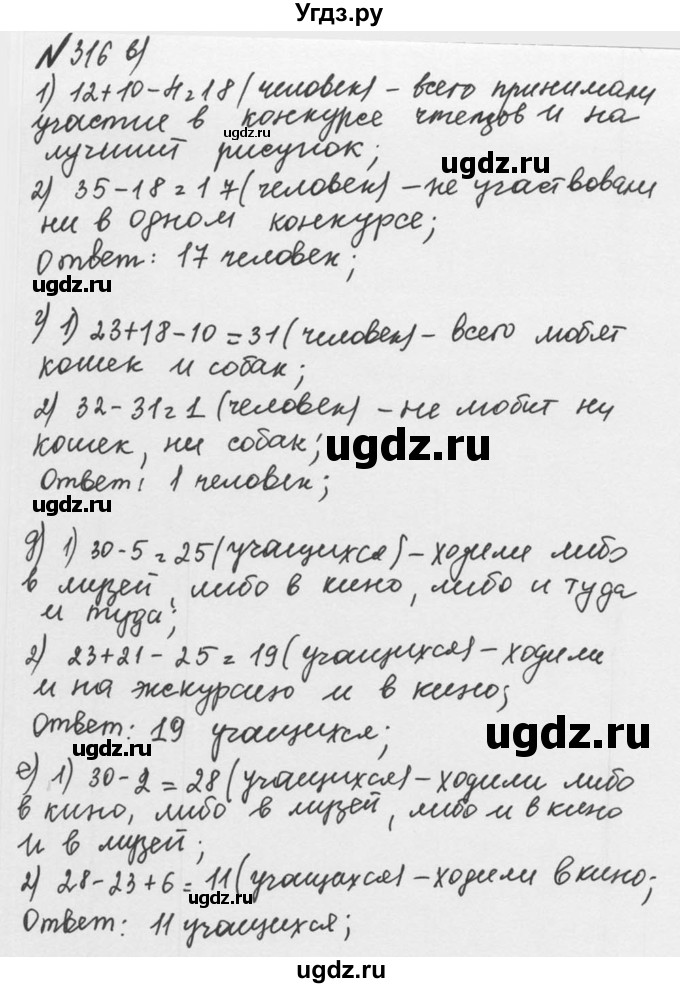 Угдз.ру
№316 в)
1) 12+10-4=18 (человек) - всего принимали
участие в конкурсе чтецов и на
ugdz.ru
ugdz.ru
лучший рисунок;
2) 35-18=17 (человек) - не участвовали
ни в одном конкурсе;
Ответ: 17 человек;
ugdz.ru
ugdz.ru
г) 1) 23+18-10=31 (человек) - всего любят
кошек и собак;
2) 32-31=1 (человек) - не любит ни
кошек, ни собак;
ugdz.ru
Ответ: 1 человек;
ugdz.ru
д) 1) 30-5=25 (учащихся) - ходили либо
в музей, либо в кино, либо и туда
и туда;
ugdz.ru
2) 23+21-25=19 (учащихся) - ходили
и на экскурсию и в кино;
Ответ: 19 учащихся;
ugdz.ru
ugdz.ru
е) 1) 30-2=28 (учащихся) - ходили либо
в кино, либо в музей, либо и в кино
и в музей;
ugdz.ru
2) 28-23+6=11 (учащахся) - ходили в кино;
Ответ: 11 учащихся;
ugdz.ru
ugdz.ru